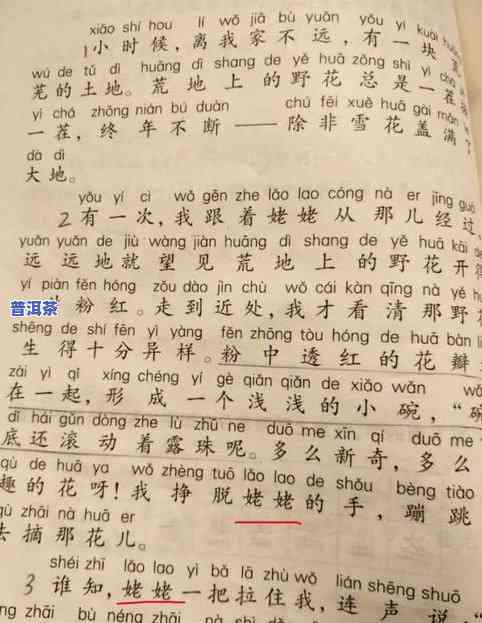 xiǎo shí hou lí wǒ jiā bù yuǎn yǒu yí kuài
1小时候，离我家不远，有一块
wú de tǔ dì huāng dì shang de yě huā zǒng shì yì chá
芜的土地。荒地上的野花总是一茬
yì chá zhōng nián bú duàn chú fēi xuě huā gài mǎn
一茬，终年不断——除非雪花盖满了
dà dì
大地。
yǒu yí cì wǒ gēn zhe lǎo lao cóng nà er jīng guò
2有一次，我跟着姥姥从那儿经过，
yuǎn yuǎn de jiù wàng jiàn huāng dì shang de yě huā kāi de
远远地就望见荒地上的野花开得
yí piàn fěn hóng zǒu dào jìn chù wǒ cái kàn qīng nà yě huā
普洱茶
粉红。走到近处，我才看清那野花
shēng de shí fēn yì yàng fěn zhōng tòu hóng de huā bàn
生得十分异样。粉中透红的花瓣
zài yì qǐ xíng chéng yí gè qiǎn qiǎn de xiǎo wǎn wǎ
在一起，形成一个浅浅的小碗，“碗
dǐ hái gǔn dòng zhe lù zhū ne duō me xīn qí duō me
底还滚动着露珠呢。多么新奇，多么
qù de huā ya wǒ zhèng tuō lǎo lao de shǒu bèng tiào
趣的花呀！我挣脱姥姥的手，蹦跳
qù zhāi nà huā er
去摘那花儿。
shéi zhī lǎo lao yì bǎ lā zhù wǒ lián shēng shuō
3谁知，姥姥一把拉住我，连声说，“
néng zhāi bù néng zhāi nà shì